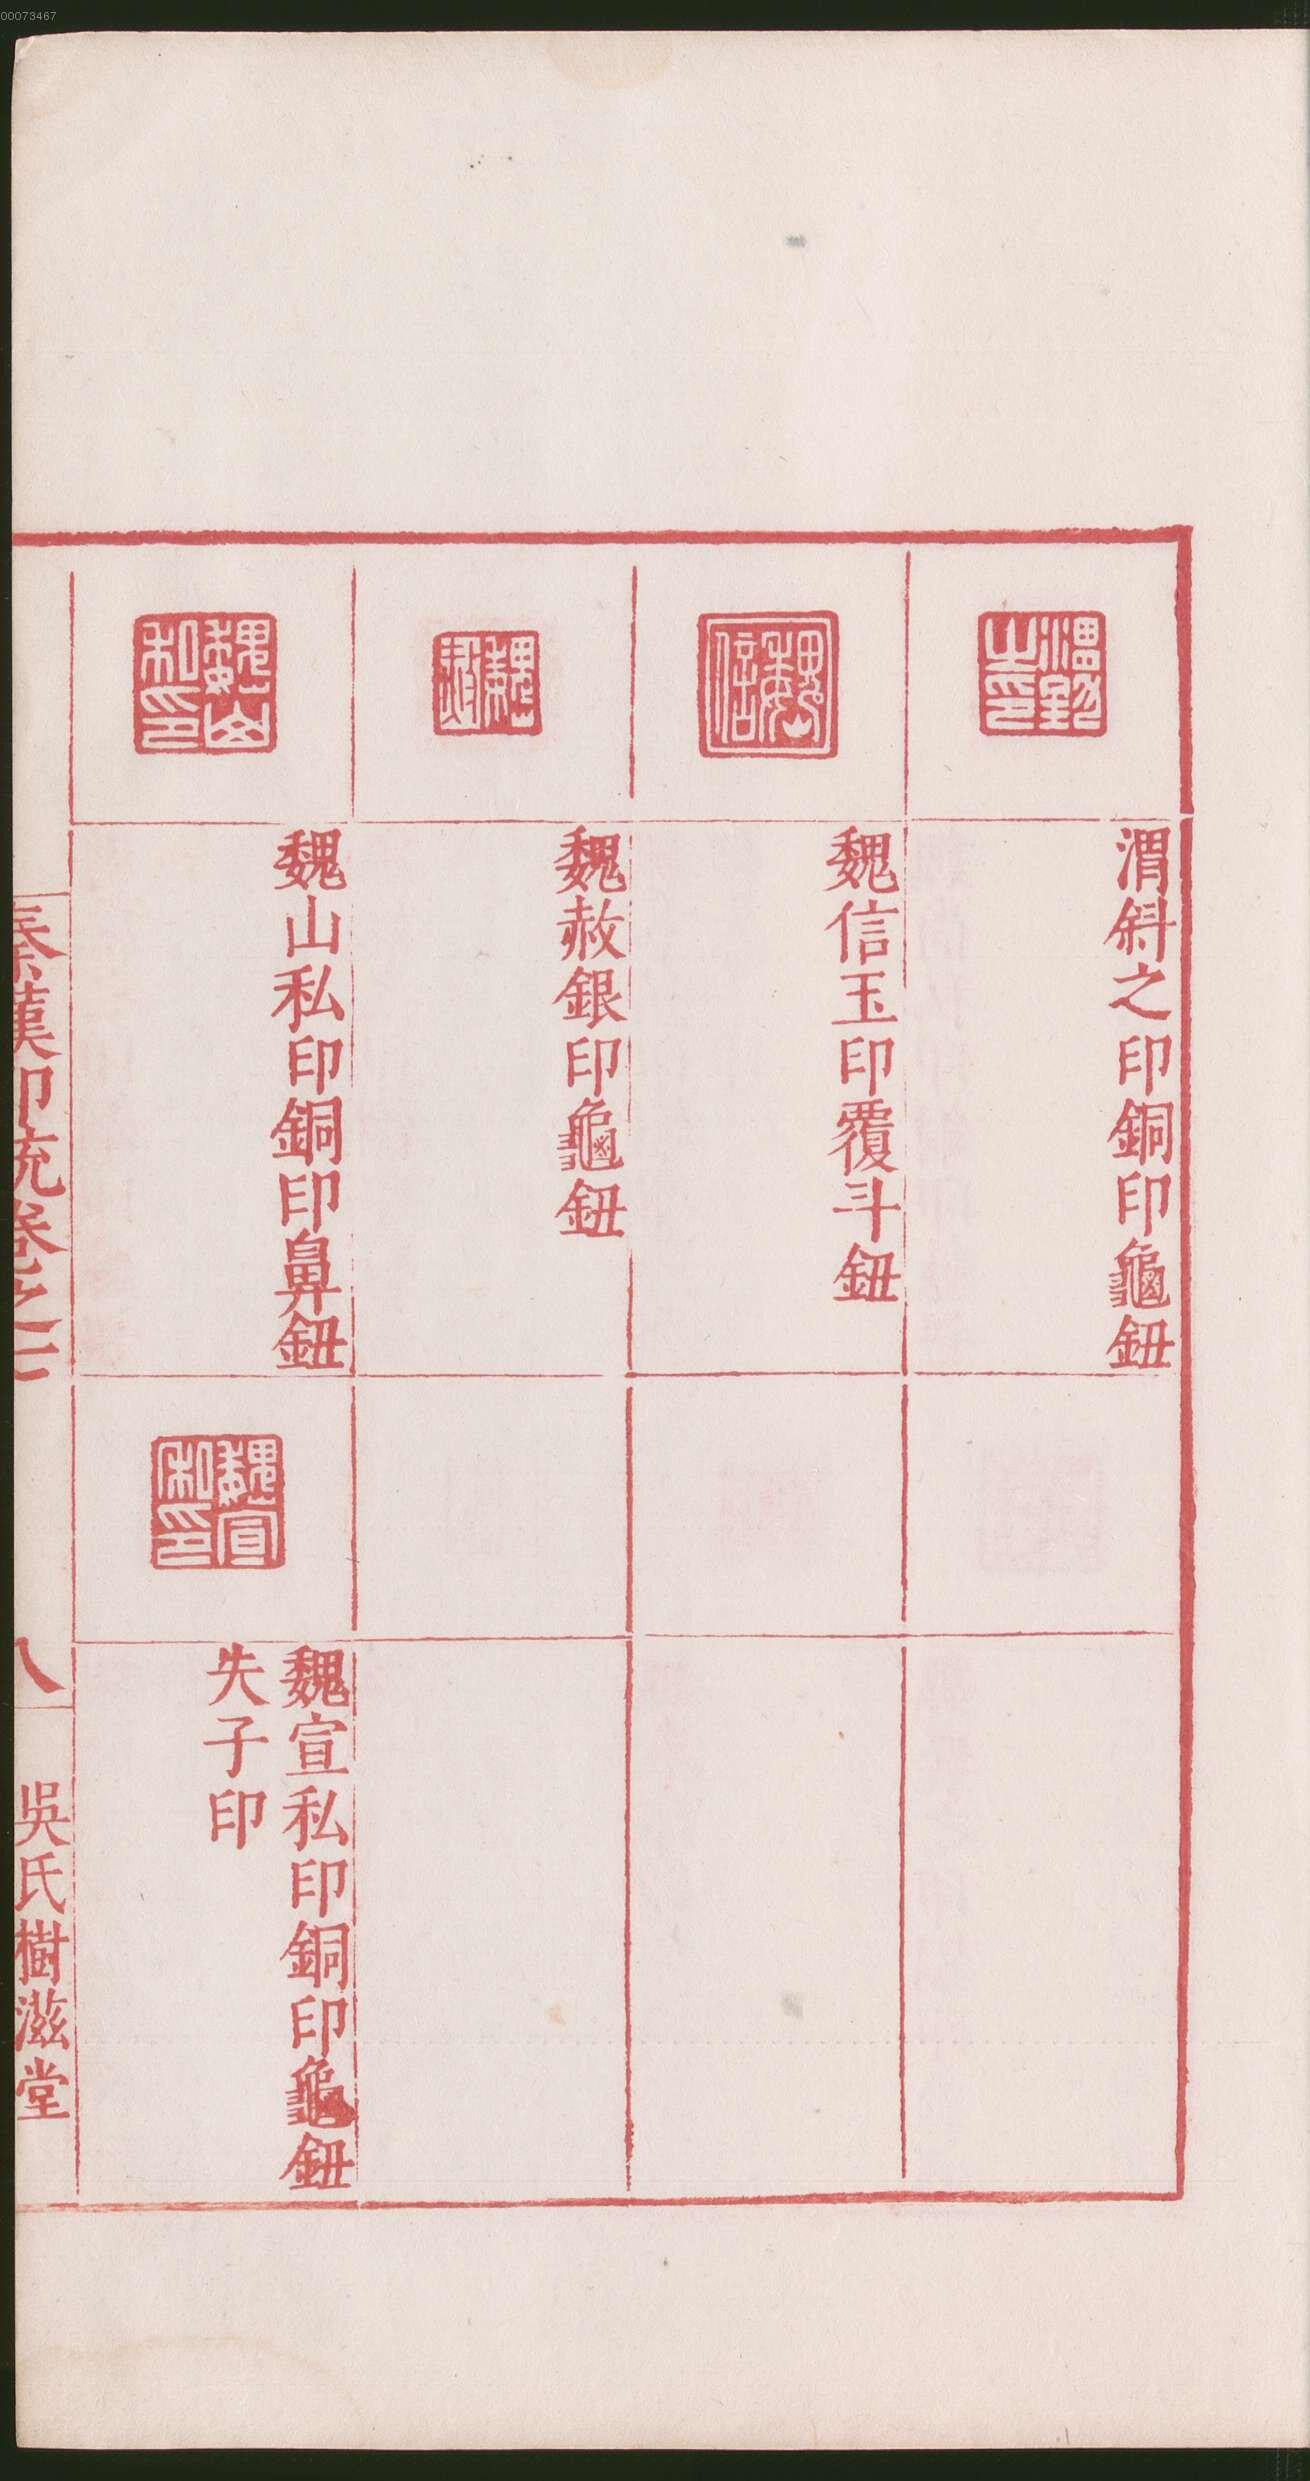 00073467
渭斜之印銅印龜鈕
魏信玉印覆斗鈕
魏赦銀印龜鈕
魏山私印銅印鼻鈕
魏宣私印銅印龜鈕
失子印
魏信
魏山私印
魏宣私印
秦漢印統卷之二
八
吳氏樹滋堂